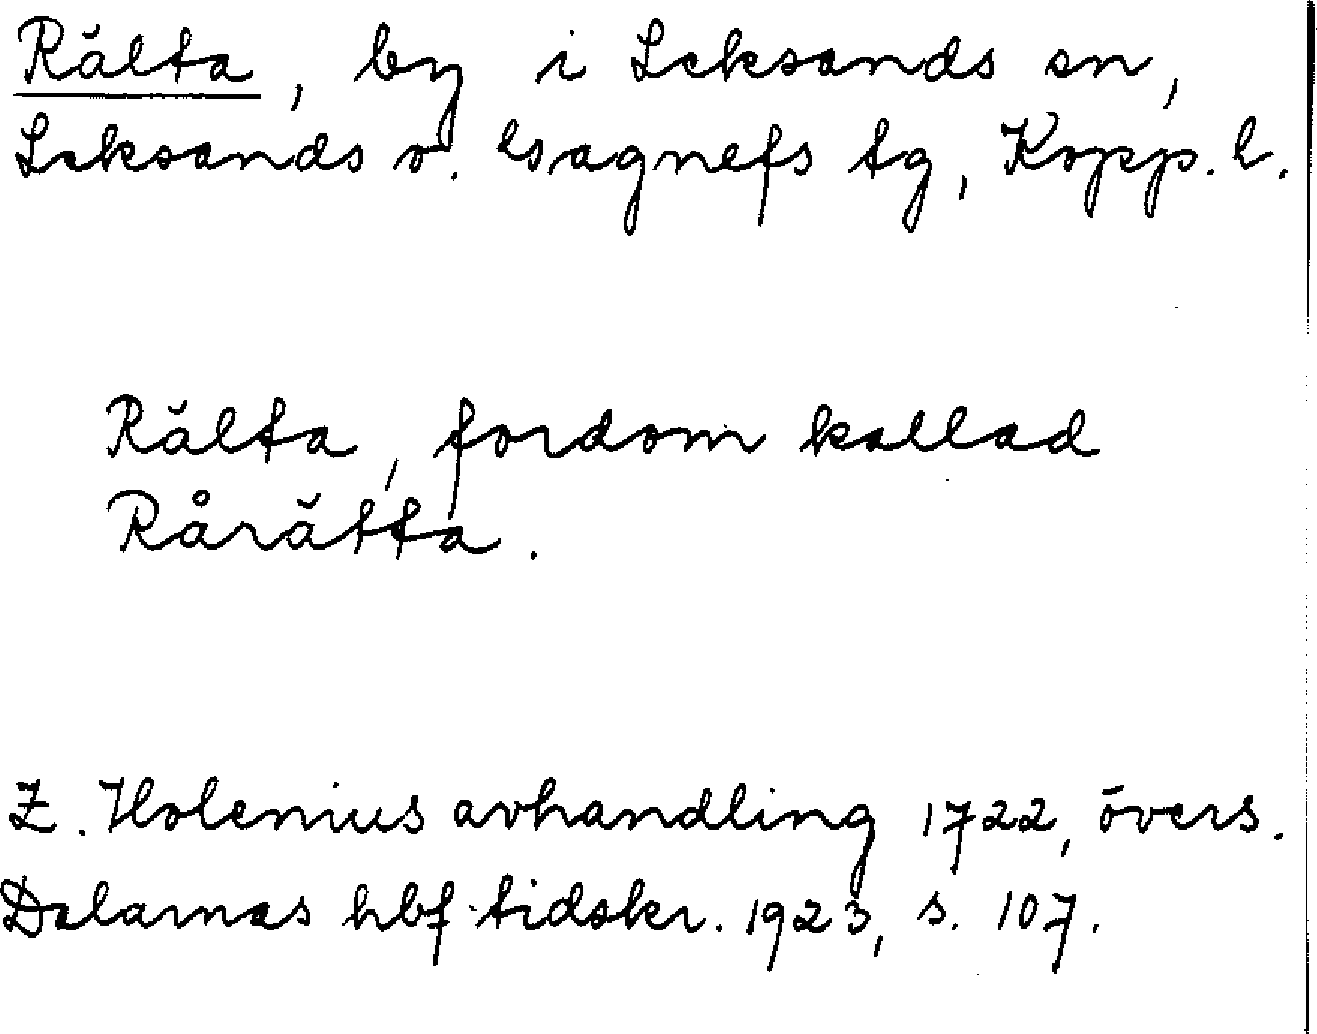 Rälta, by i Leksands sn,
Leksands o. Gagnefs tg, Kopp. l.
Rälta, fordom kallad
Rårätta.
Z. Holenius avhandling 1722, övers.
Dalarnas hbf tidskr. 1923, s. 107.